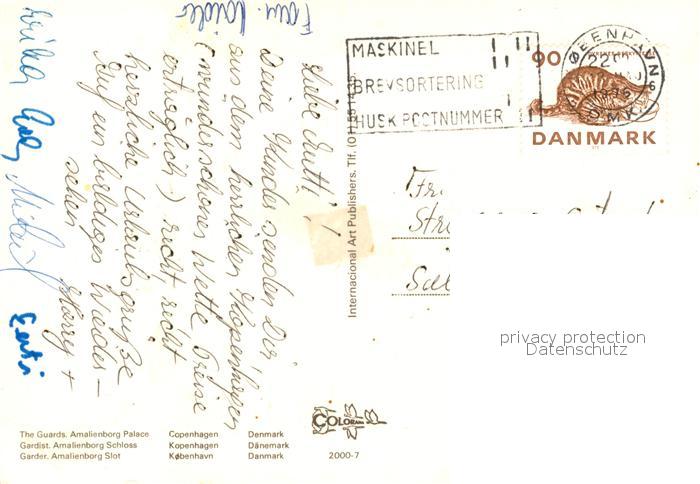 Liebe Mutti!
Deine Kinder senden Dir
aus dem herrlichen Kopenhagen
(wunderschönes Wetter, Preise
erträglich) recht, recht
herzliche Urlaubsgrüße
Auf ein baldiges Wieder-
sehen Harry +
Fam.
MASKINEL
BREVSORTERING
HUSK POSTNUMMER
KØBENHAVN
1975
OMK
90
DANMARK
Internacional Art Publishers. Tlf. (01)
Str
privacy protection
Datenschutz
COLORAMA
The Guards. Amalienborg Palace Copenhagen Denmark
Gardist. Amalienborg Schloss Kopenhagen Dänemark
Garder. Amalienborg Slot København Danmark
2000-7